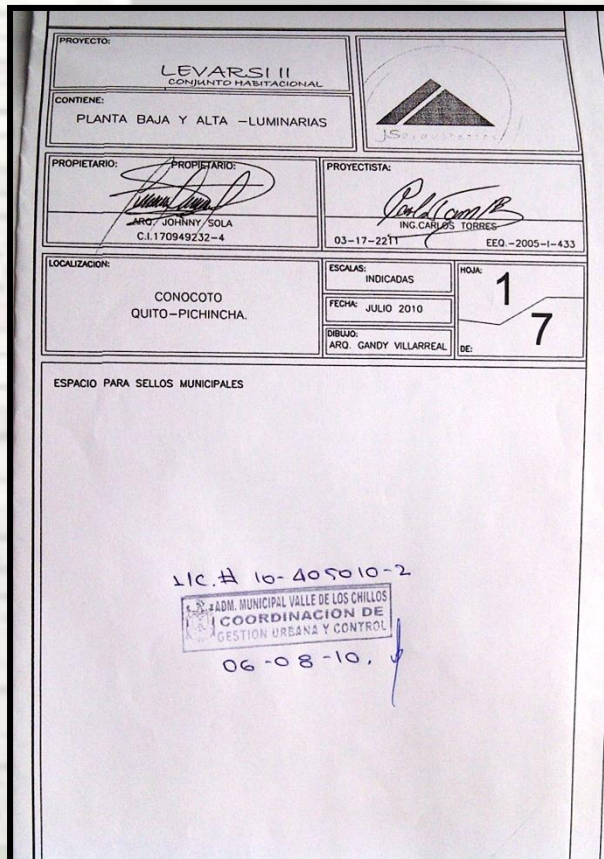 PROYECTO:
LEVARSI II
CONJUNTO HABITACIONAL
CONTIENE:
PLANTA BAJA Y ALTA –LUMINARIAS
PROPIETARIO:
PROPIETARIO:
ARQ. JOHNNY SOLA
C.I.170949232-4
PROYECTISTA:
ING.CARLOS TORRES
03-17-2211
EEQ.-2005-I-433
LOCALIZACION:
CONOCOTO
QUITO-PICHINCHA.
ESCALAS:
INDICADAS
FECHA: JULIO 2010
DIBUJO:
ARQ. GANDY VILLARREAL
HOJA:
1
7
DE:
ESPACIO PARA SELLOS MUNICIPALES
LIC.# 10-405010-2
ADM. MUNICIPAL VALLE DE LOS CHILLOS
COORDINACION DE
GESTION URBANA Y CONTROL
06-08-10.